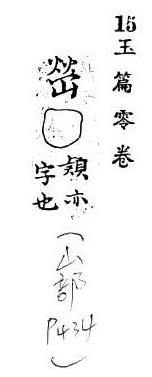 15玉篇零卷
嵤
亦
字也
（山部
P434）